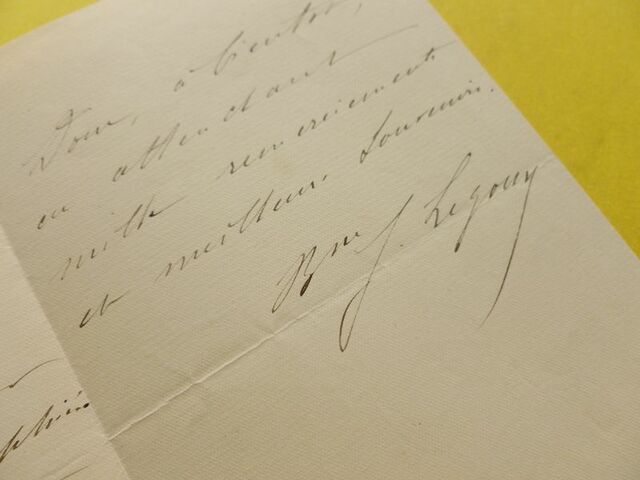 Donc, à bientôt,
en attendant
mille remerciements
et meilleurs souvenirs.
Bne J. Legoux